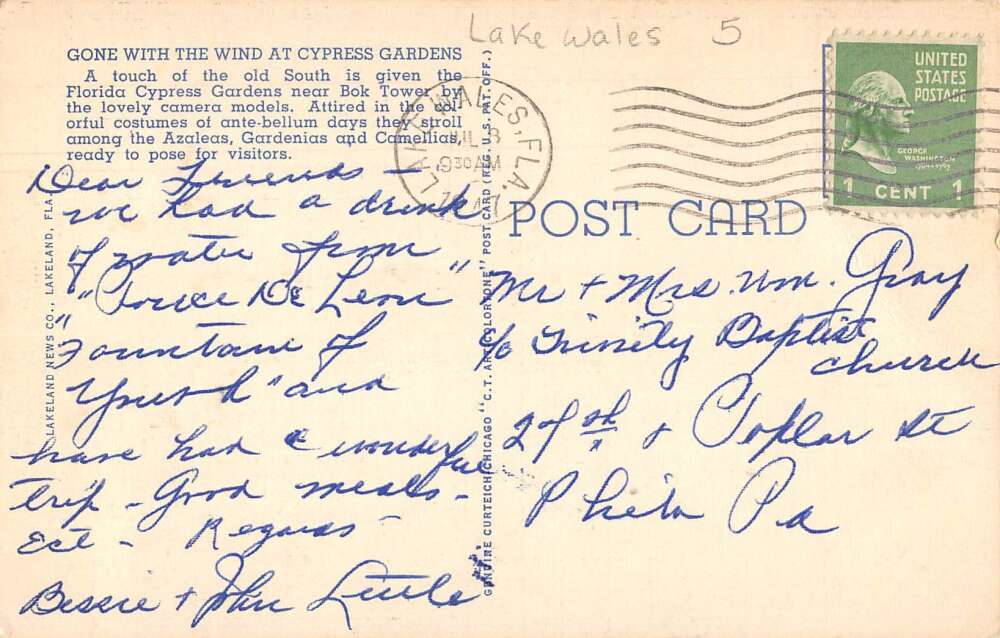 Lake Wales 5
GONE WITH THE WIND AT CYPRESS GARDENS
A touch of the old South is given the
Florida Cypress Gardens near Bok Tower by
the lovely camera models. Attired in the col-
orful costumes of ante-bellum days they stroll
among the Azaleas, Gardenias and Camellias,
ready to pose for visitors.
Dear Friends -
we had a drink
of water from
"Ponce De Leon"
"Fountain of
Youth" and
have had a wonderful
trip - Good meals -
Ect - Regards -
Bessie + John Little
LAKELAND NEWS CO., LAKELAND, FLA.
GENUINE CURTEICH-CHICAGO "C. T. ART-COLORTONE" POST CARD (REG. U. S. PAT. OFF.)
LAKE WALES, FLA.
JUL 8
930 AM
UNITED
STATES
POSTAGE
GEORGE
WASHINGTON
1 CENT 1
POST CARD
Mr + Mrs. Wm. Gray
c/o Trinity Baptist
Church
27th + Poplar St
Phila Pa